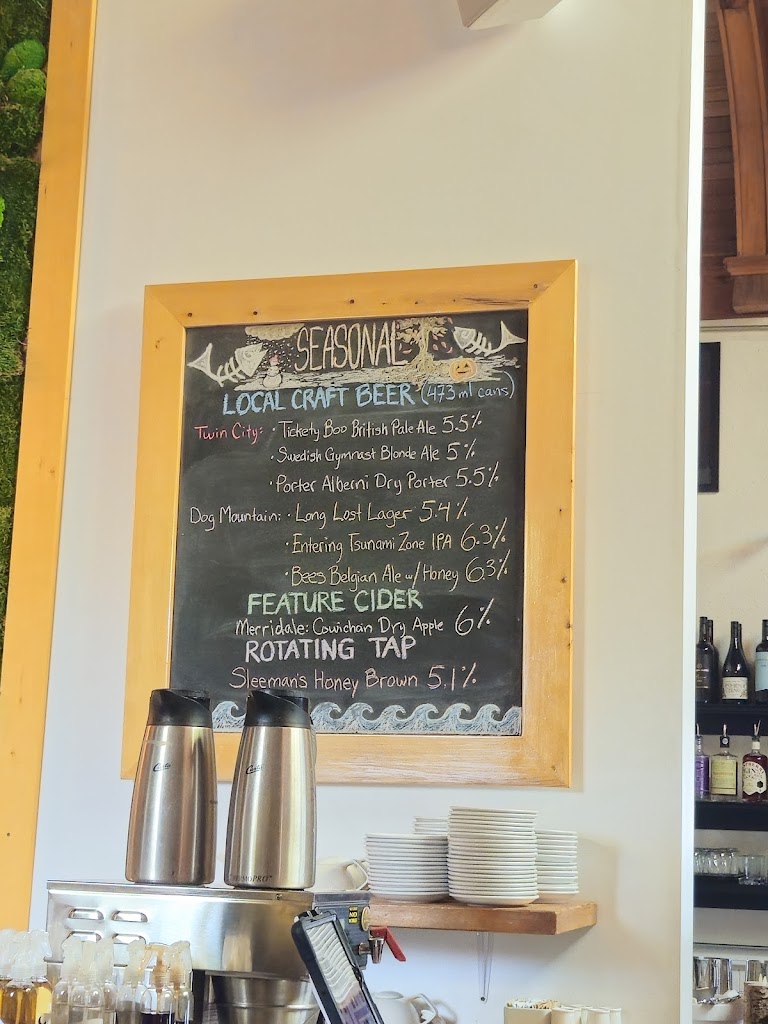 SEASONAL
LOCAL CRAFT BEER (473 ml cans)
Twin City: · Tickety Boo British Pale Ale 5.5%
· Swedish Gymnast Blonde Ale 5%
· Porter Alberni Dry Porter 5.5%
Dog Mountain: · Long Lost Lager 5.4%
· Entering Tsunami Zone IPA 6.3%
· Bees Belgian Ale w/ Honey 6.3%
FEATURE CIDER
Merridale: Cowichan Dry Apple 6%
ROTATING TAP
Sleeman's Honey Brown 5.1%
Curtis
Curtis
THERMOPRO